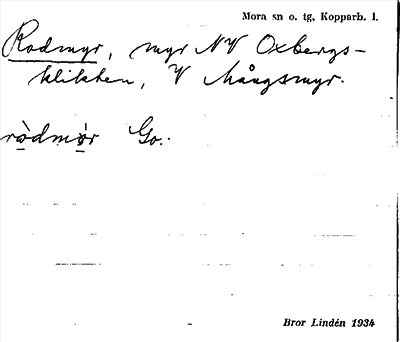 Mora sn o. tg, Kopparb. l.
Rodmyr, myr NV Oxbergs-
klikten, V Mångsmyr.
ròdmòr Go.
Bror Lindén 1934